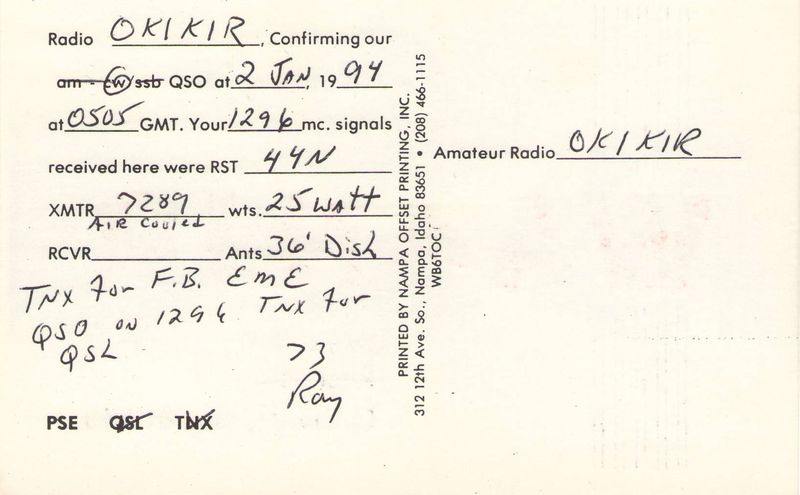 Radio OK1KIR, Confirming our
am - cw/ssb QSO at 2 JAN, 19 94
at 0505 GMT. Your 1296 mc. signals
received here were RST 44N
XMTR 7289 wts. 25 WATT
AIR COOLED
RCVR Ants 36' Dish
TNX For F.B. EME
QSO on 1296 TNX For
QSL
73
Ray
PSE QSL TNX
PRINTED BY NAMPA OFFSET PRINTING, INC.
312 12th Ave. So., Nampa, Idaho 83651 • (208) 466-1115
WB6TOC
Amateur Radio OK1KIR